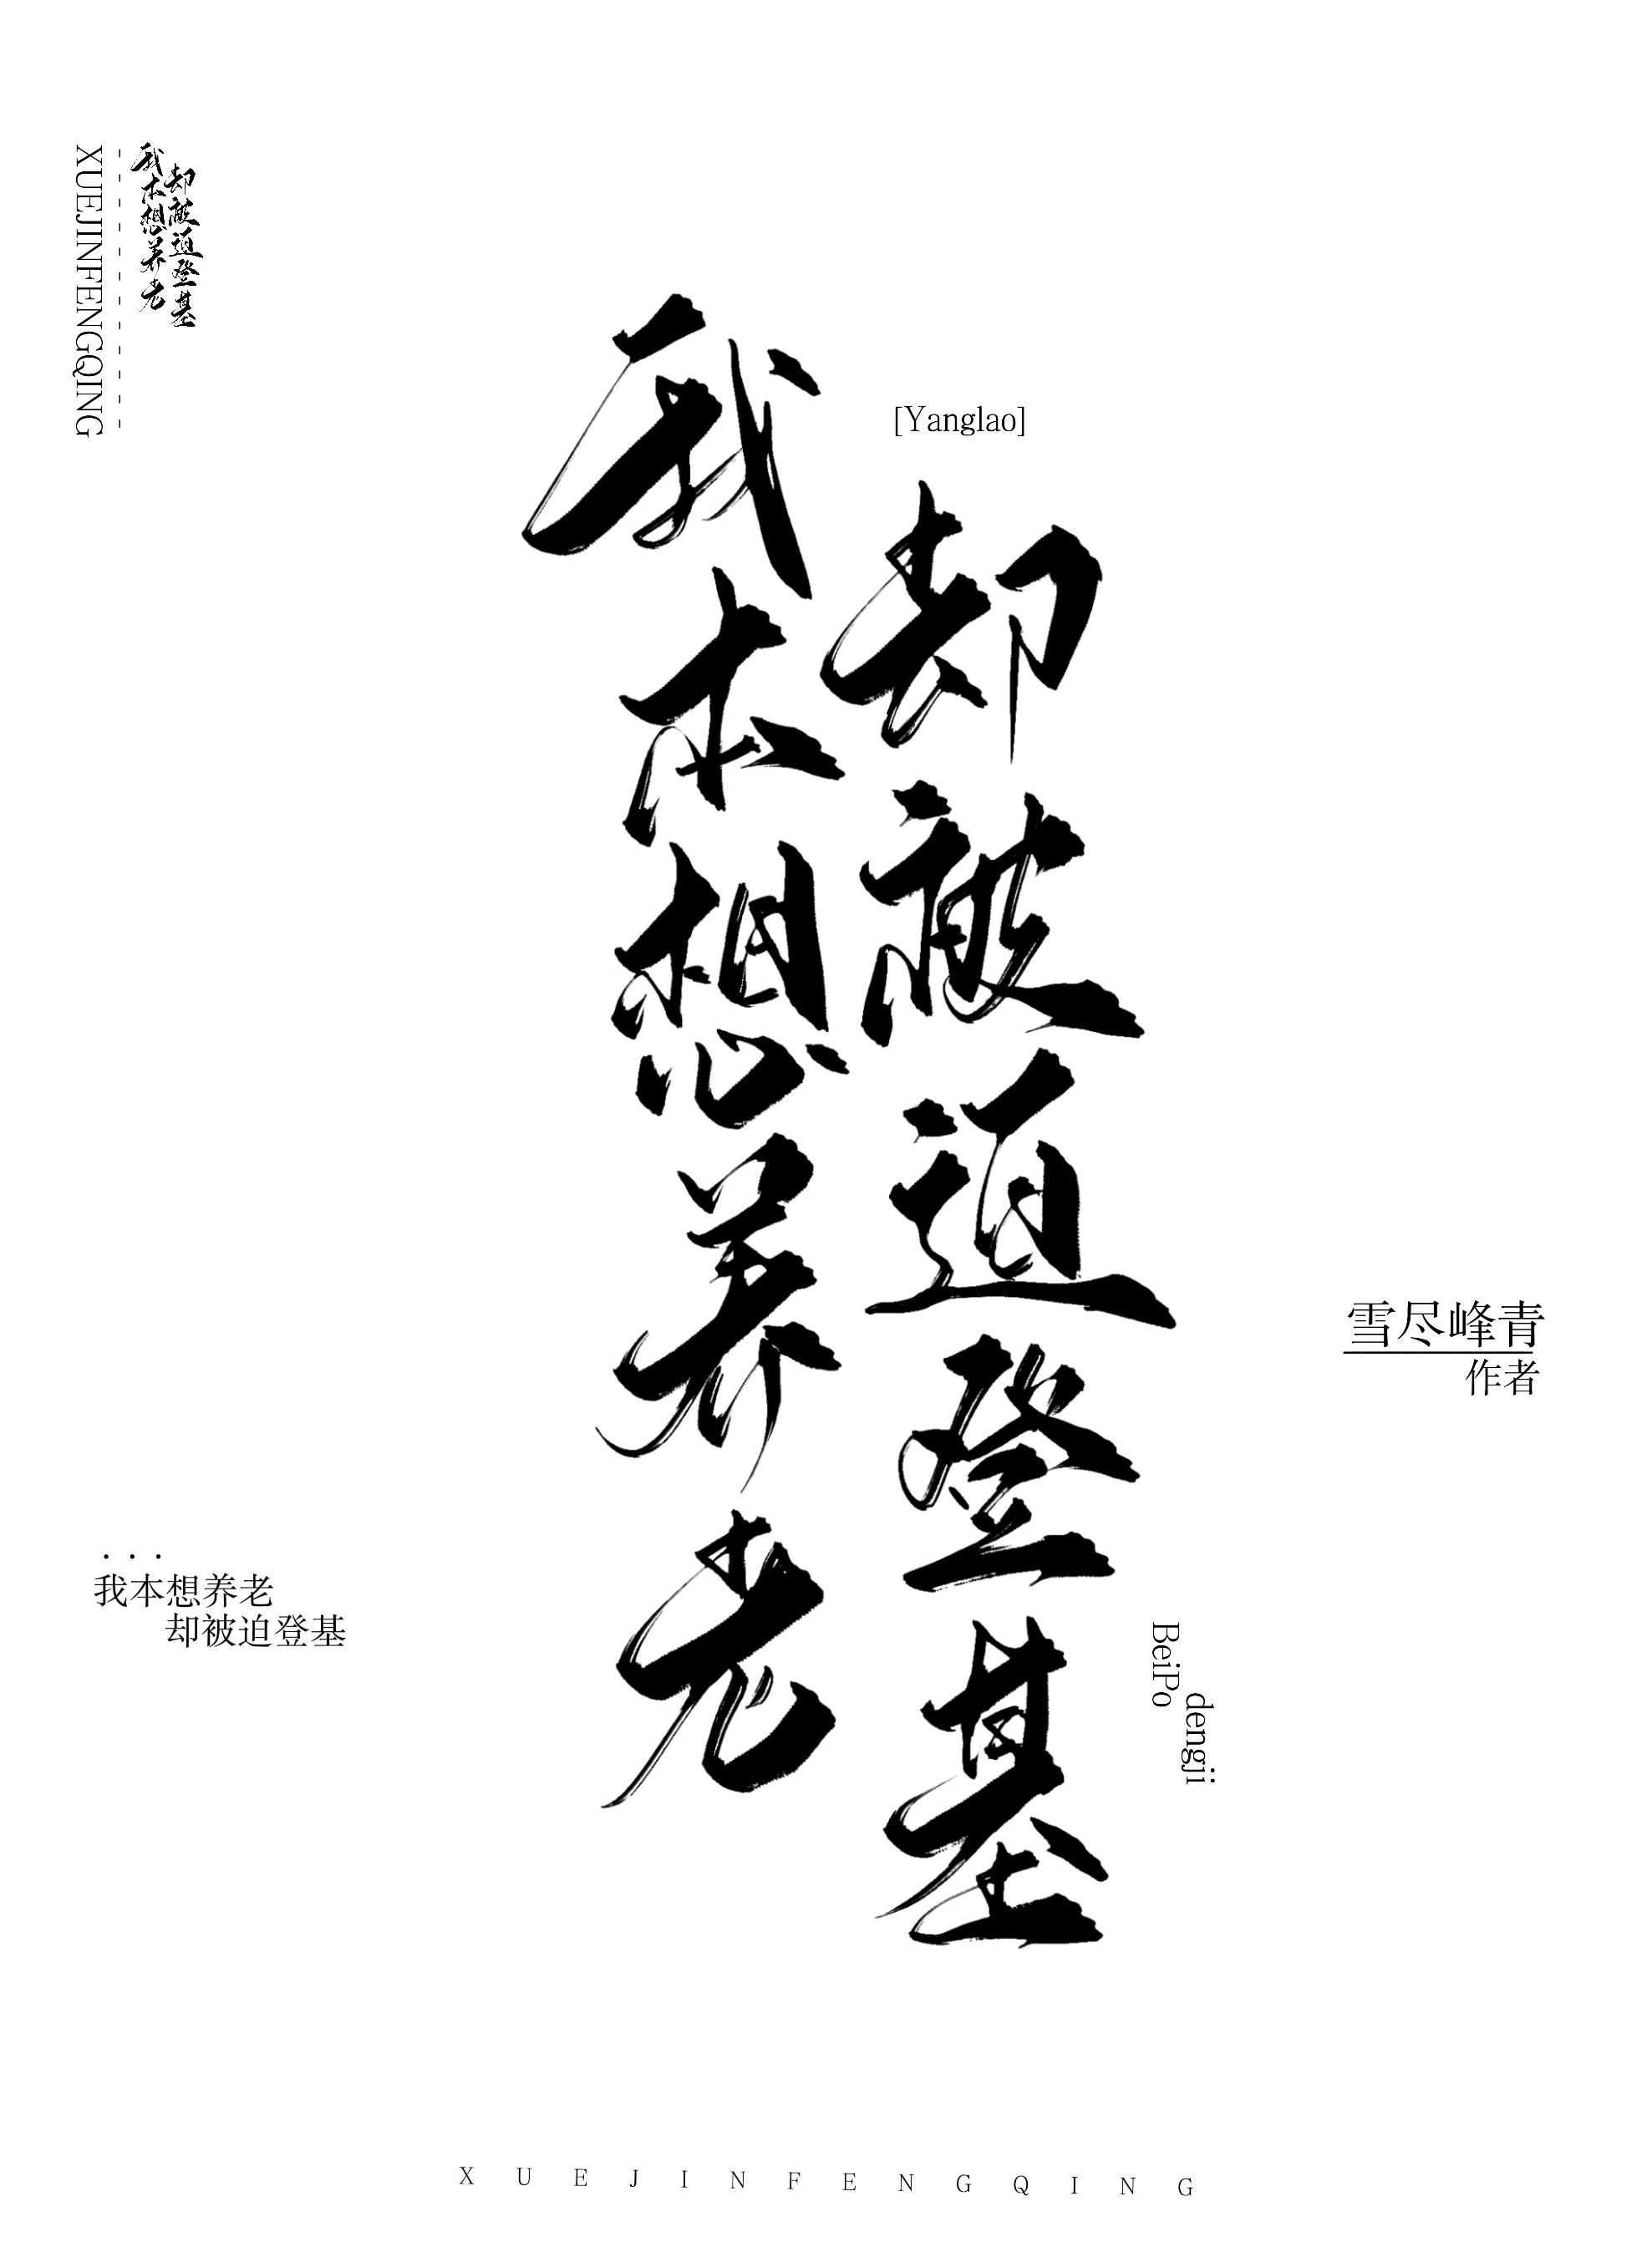 XUEJINFENGQING
我本想养老
却被迫登基
[Yanglao]
我本想养老
却被迫登基
雪尽峰青
作者
...
我本想养老
却被迫登基
BeiPo
dengji
XUEJINFENGQING